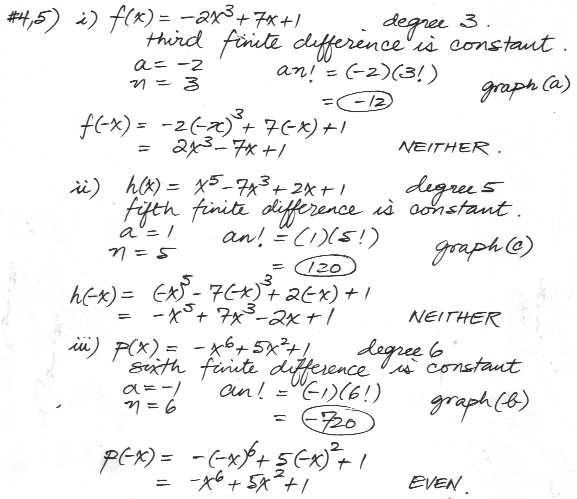 #4,5) i) f(x) = -2x³ + 7x + 1 degree 3.
third finite difference is constant.
a = -2 an! = (-2)(3!)
n = 3 = -12 graph (a)
f(-x) = -2(-x)³ + 7(-x) + 1
= 2x³ - 7x + 1 NEITHER.
ii) h(x) = x⁵ - 7x³ + 2x + 1 degree 5
fifth finite difference is constant.
a = 1 an! = (1)(5!)
n = 5 = 120 graph (c)
h(-x) = (-x)⁵ - 7(-x)³ + 2(-x) + 1
= -x⁵ + 7x³ - 2x + 1 NEITHER
iii) p(x) = -x⁶ + 5x² + 1 degree 6
sixth finite difference is constant
a = -1 an! = (-1)(6!)
n = 6 = -720 graph (b)
p(-x) = -(-x)⁶ + 5(-x)² + 1
= -x⁶ + 5x² + 1 EVEN.